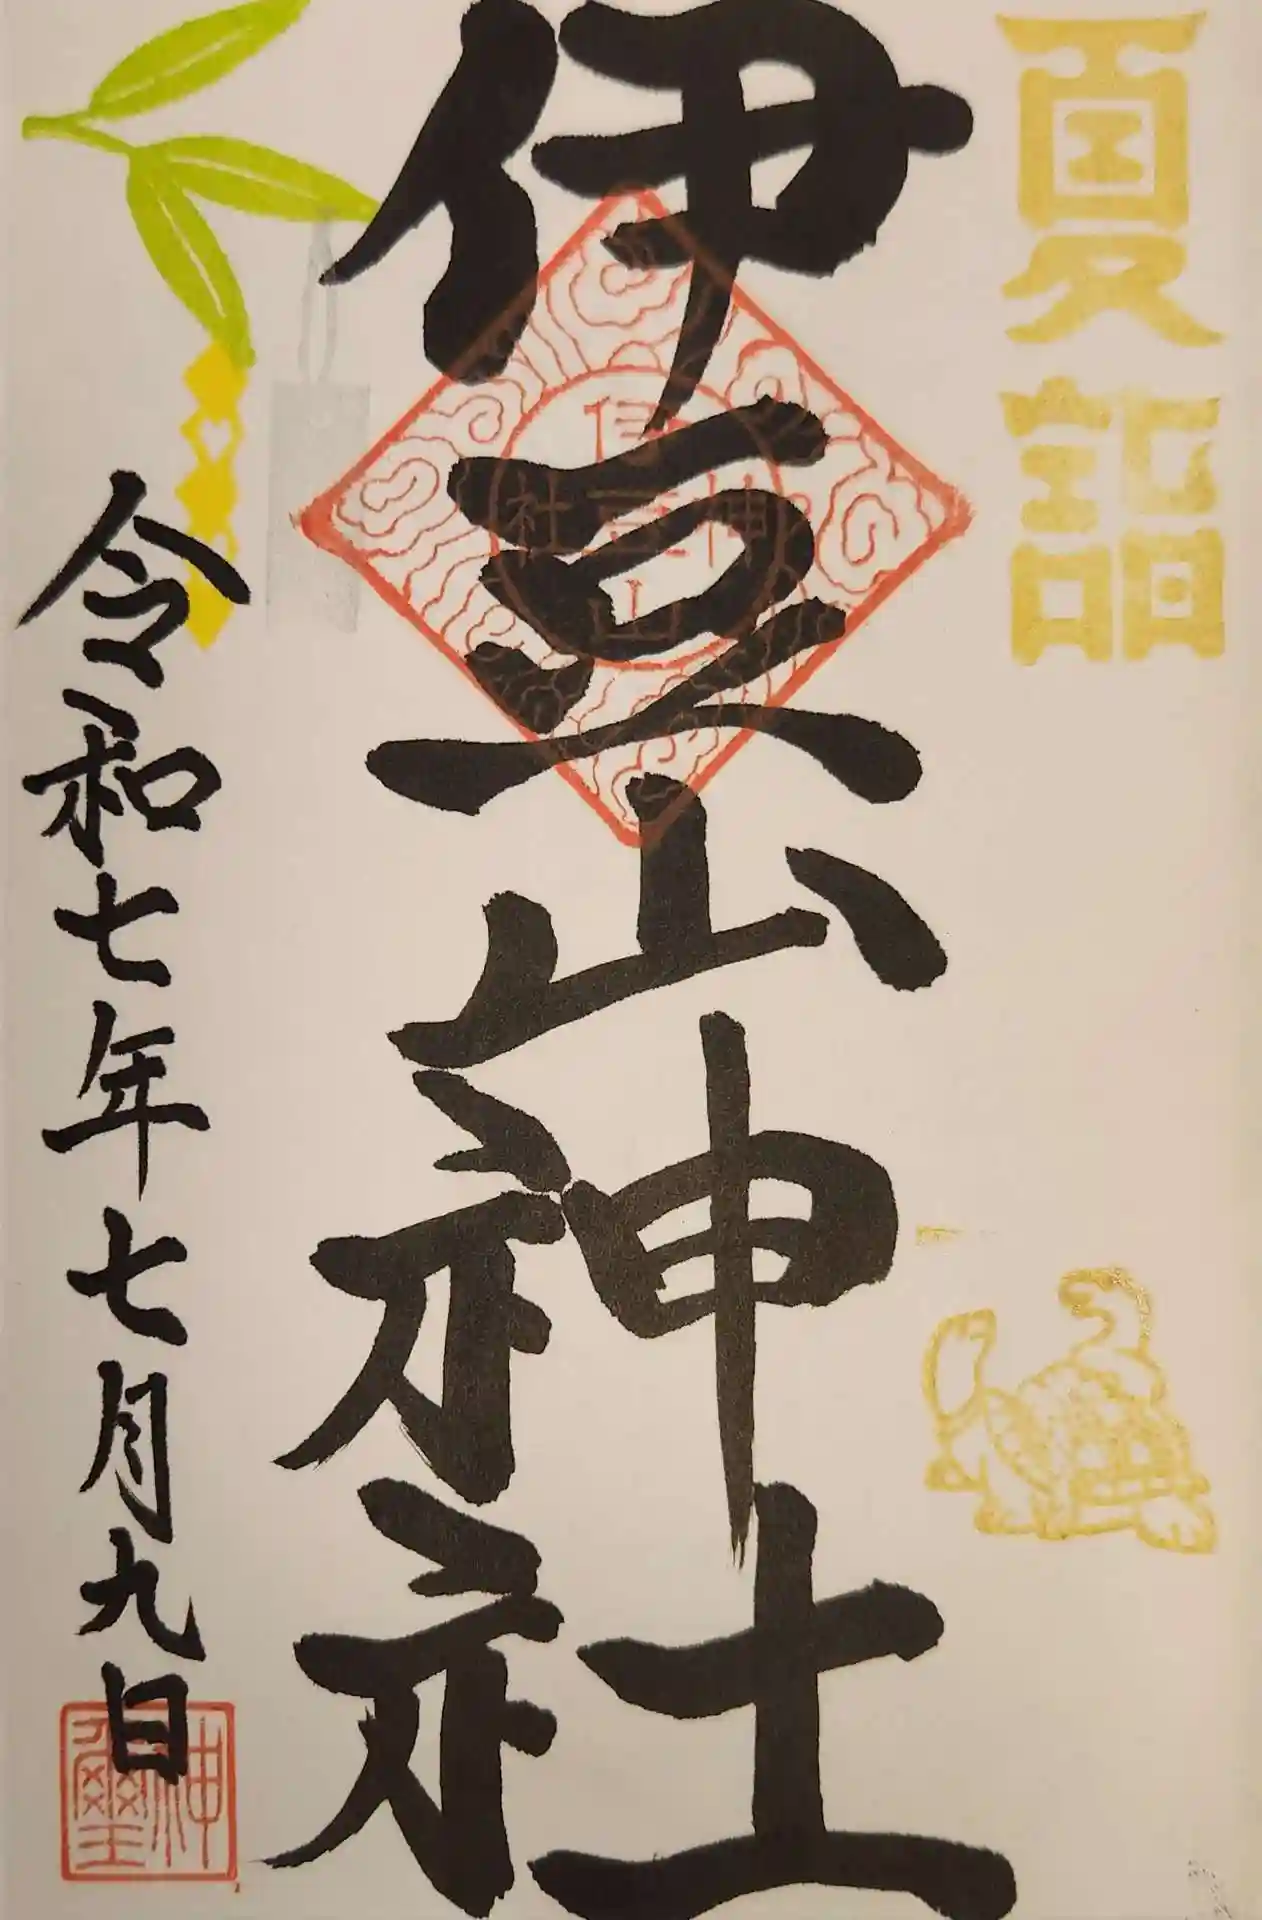 夏詣
伊豆山神社
伊豆山
神社
令和七年七月九日
神璽